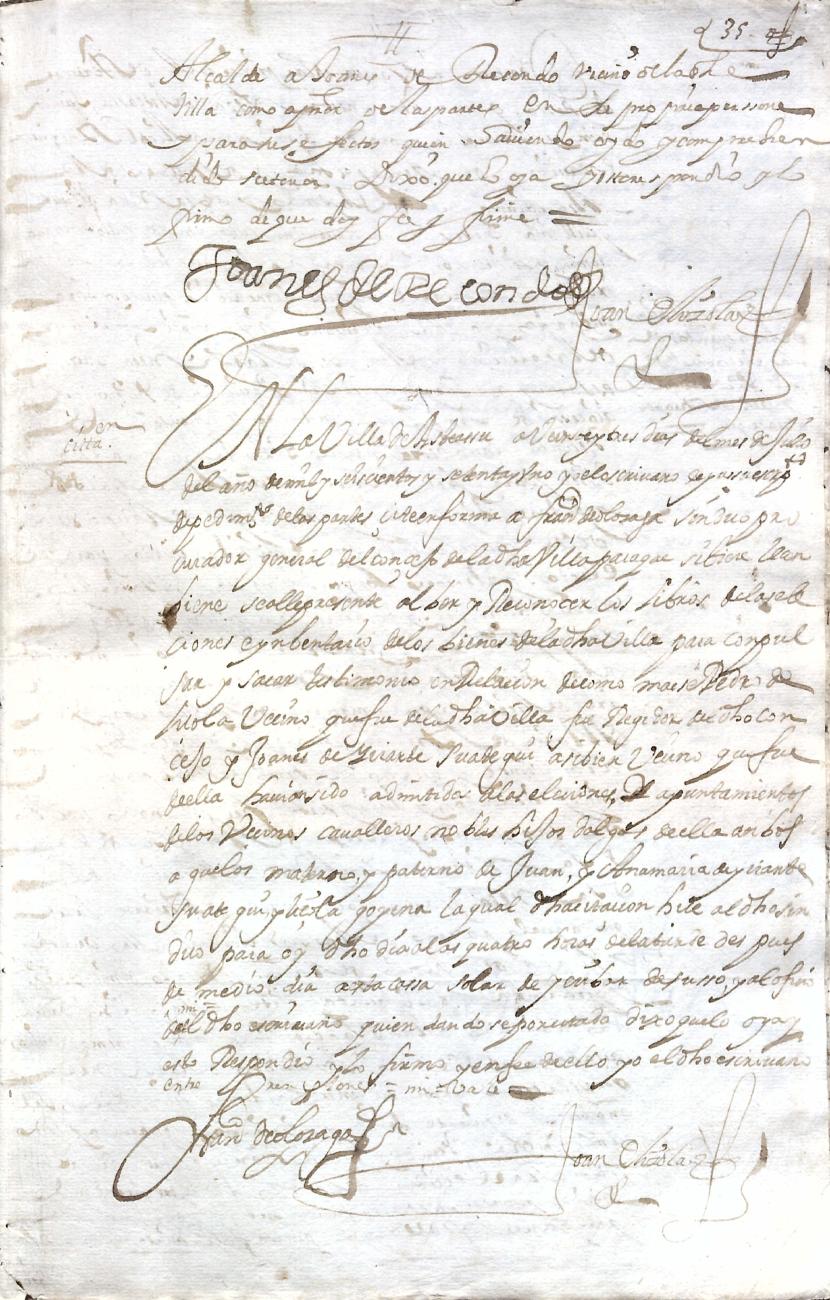 35
Alcalde a Joanes de Recondo vecino de la dha
Villa como apoder de las partes en su propria persona
y para dhos efectos quien haviendo oydo y comprehen
dido su tenor Dixo que lo oya y esto respondio y lo
firmo de que doy fee y firme =
Joanes de Recondo
Joan Olizola
Citta en
EN La Villa de Asteasu a Veinte y tres dias del mes de Julio
del año de mill y seiscientos y setenta y uno yo el escrivano de yusso escrito
de pedimto de las partes cite en forma a Franco de Loraga sindico pro
curador general del concejo de la dha Villa para que si biere le con
biene se alle presente al ber y Reconocer los libros de las ele
ciones e ynbentario de los bienes de la dha Villa para conpul
sar y sacar testimonio en Relacion de como maese Pedro de
Vecino que fue de la dha Villa fue Regidor de dho con
cejo y Joanes de Yriarte Suategui asi bien Vecino que fue
de ella havian sido admitidos a las eleciones, y apuntamientos
de los Vecinos cavalleros nobles hijos dalgos de ella anbos
aguelos materno, y paterno de Juan, y Ana maria de yriarte
Suategui goyena la qual dha citacion hice al dho sin
dico para oy dho dia a las quatro horas de la tarde des pues
de medio dia a esta cassa solar de de susso, y al ofiçio
mi
de el dho escrivano quien dandose por citado dixo que lo oya y
esto Respondio y lo firmo y en fee de ello yo el dho escrivano
entre Renglones = mi = Vale =
Franco de Loraga
Joan Olizola